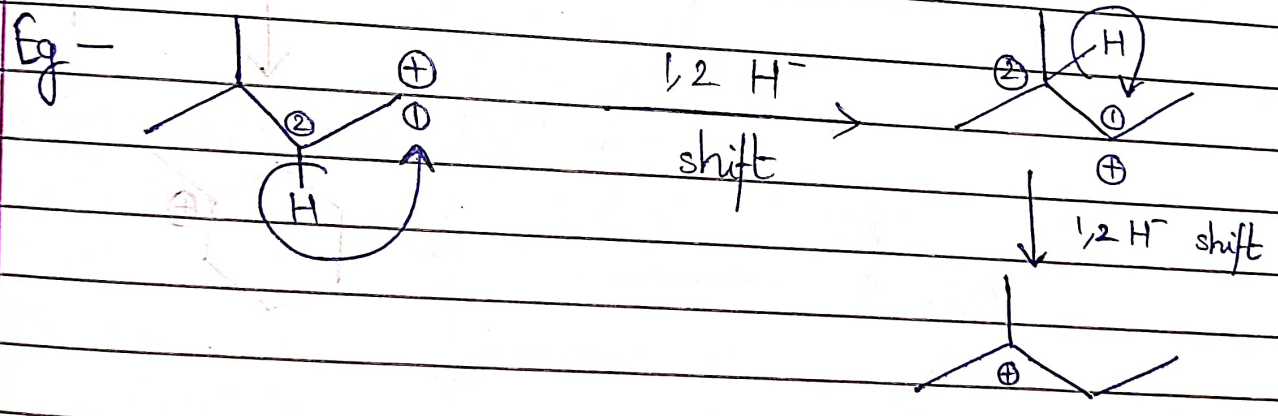 Eg -
⊕
①
②
H
1,2 H⁻
shift
②
H
①
⊕
1,2 H⁻ shift
⊕